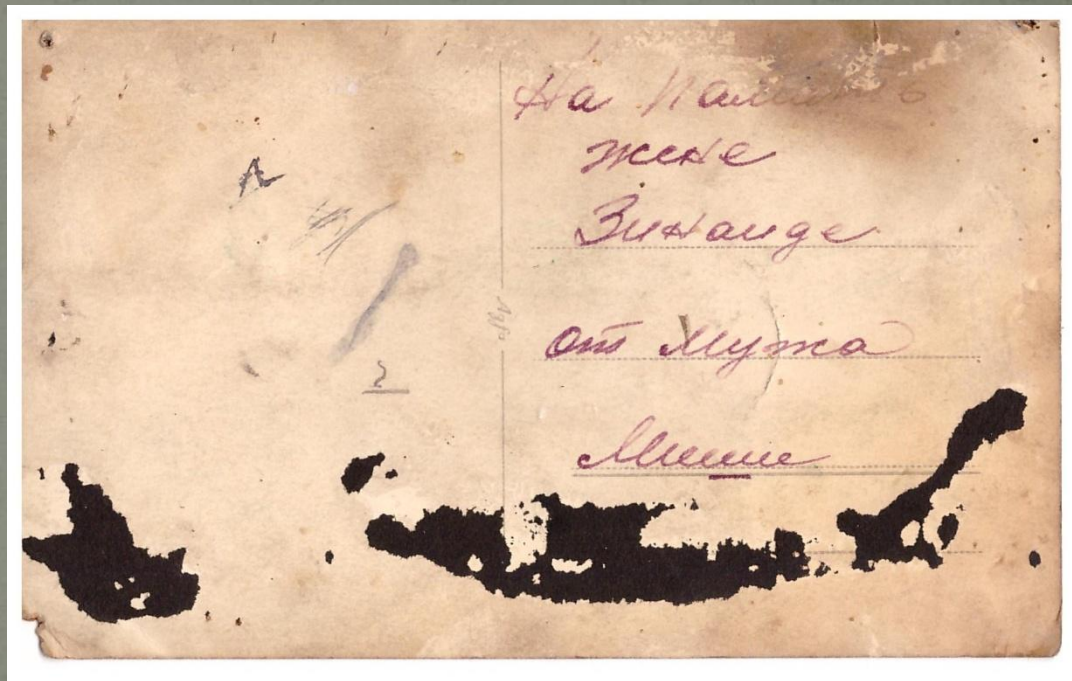 На Память
жене
Зинаиде
от Мужа
Миши